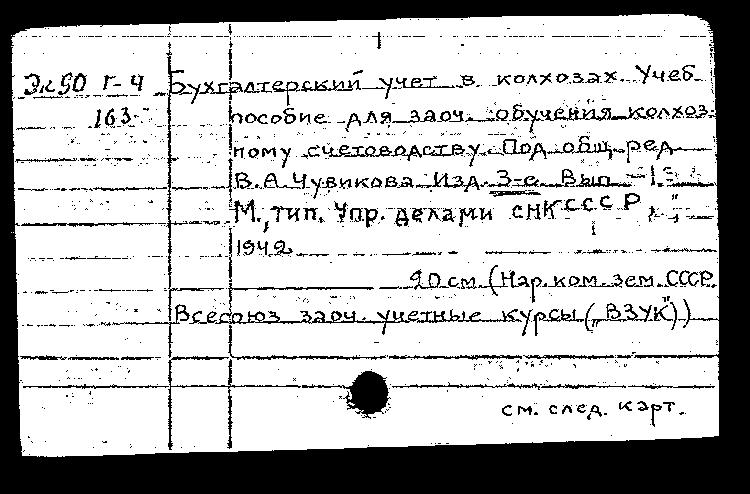 Эк50 Г-4 Бухгалтерский учет в колхозах. Учеб.
163 пособие для заоч. обучения колхоз-
ному счетоводству. Под общ. ред.
В.А. Чувикова. Изд. 3-е. Вып. 1
М., тип. Упр. делами СНК СССР,
1942
20 см. (Нар. ком. зем. СССР.
Всесоюз. заоч. учетные курсы („ВЗУК"))
см. след. карт.